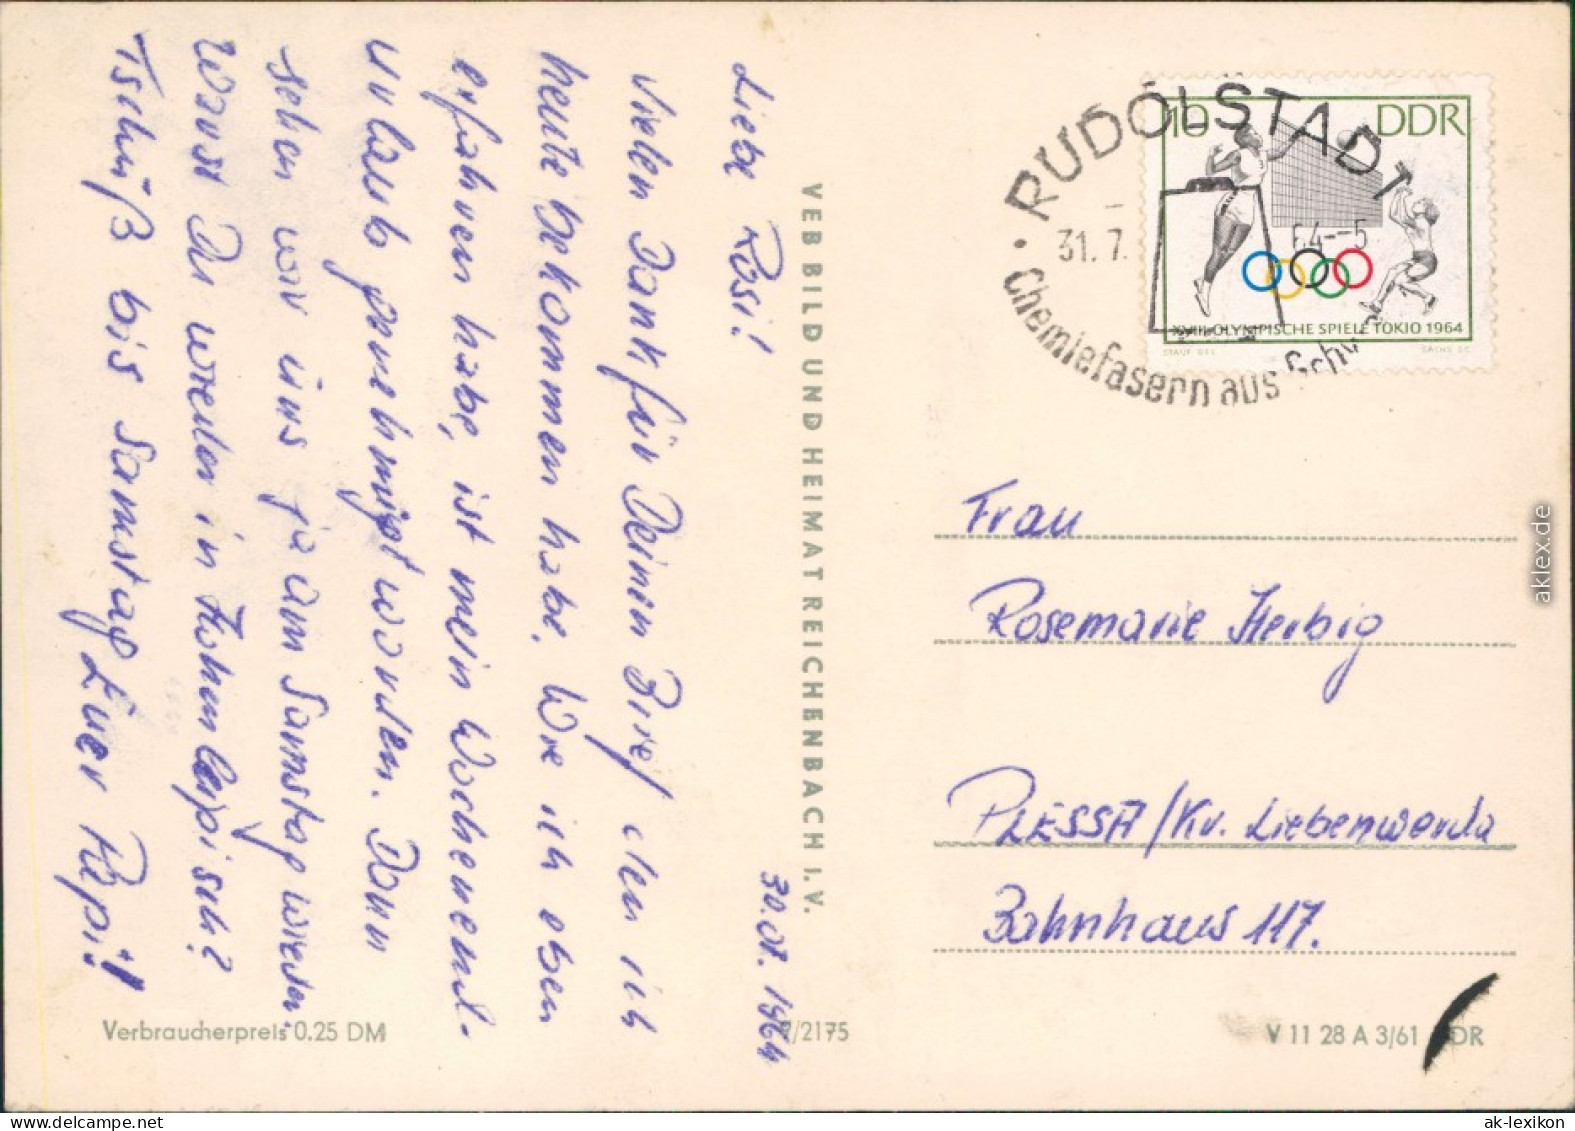 30.07.1964
Liebe Rosi!
Vielen Dank für Deinen Brief den ich
heute bekommen habe. Wie ich eben
erfahren habe, ist mein Wochenend-
urlaub genehmigt worden. Dann
sehen wir uns ja am Samstag wieder.
Warst Du wieder in Hohenleipisch?
Tschüß bis Samstag Euer
VEB BILD UND HEIMAT REICHENBACH I.V.
Verbraucherpreis 0.25 DM
/2175
10 DDR
XVIII. OLYMPISCHE SPIELE TOKIO 1964
STAUF DEL. SACHS SC.
RUDOLSTADT
31.7. 64--5
Chemiefasern aus Schw
Frau
Rosemarie Herbig
PLESSA/Kr. Liebenwerda
Bahnhaus 117.
V 11 28 A 3/61 DR
aklex.de
ak-lexikon